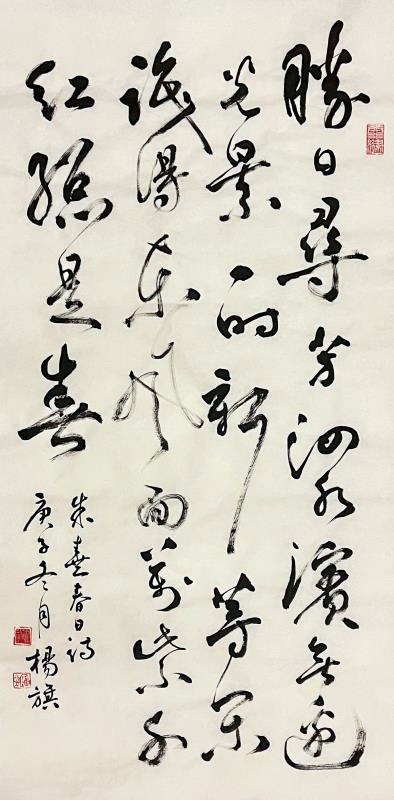 勝日尋芳泗水濱無邊
光景一時新等閑
識得東風面萬紫千
紅總是春
朱熹春日詩
庚子冬月 楊旗